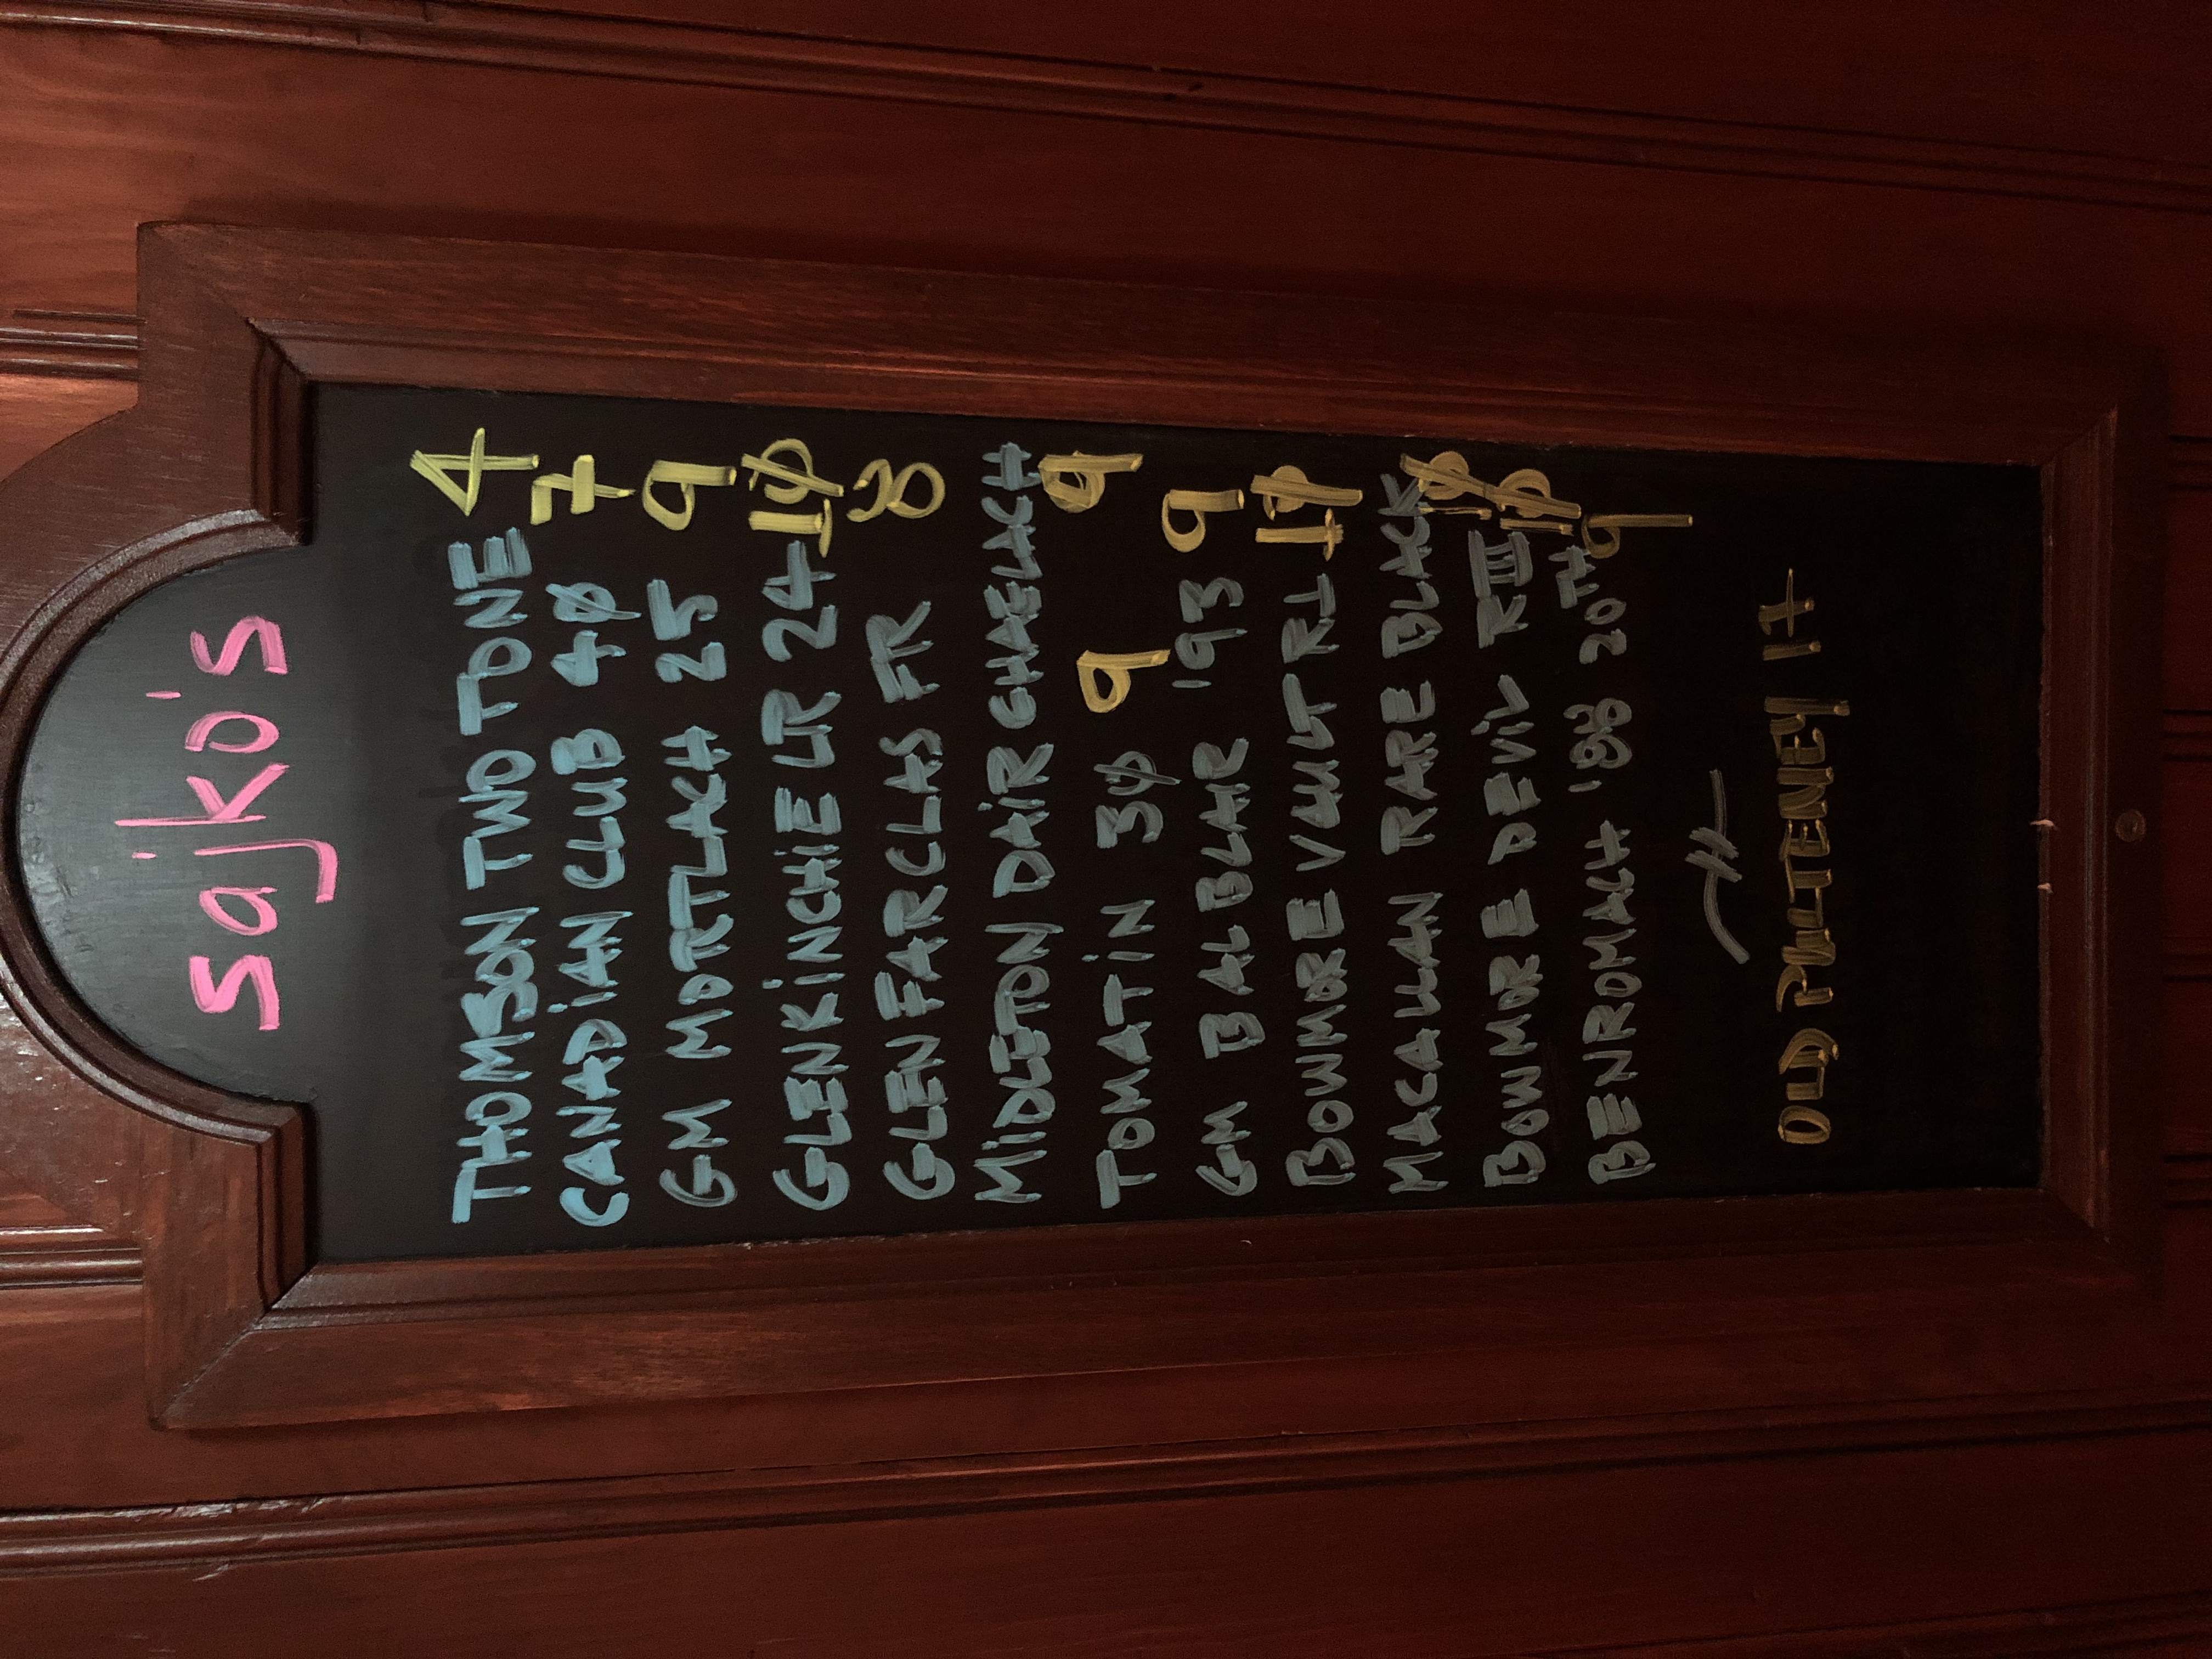 sajko's
THOMSON TWO TONE 4
CANADIAN CLUB 40 7
GM MORTLACH 25 9
GLENKINCHIE LR 24 10
GLENFARCLAS FR 8
MIDLETON DAIR GHAELACH 9
TOMATIN 30 9
GM BALBLAIR '93 9
BOWMORE VAULT R1 10
MACALLAN RARE BLACK 10
BOWMORE DEVIL RIII 10
BENROMACH '98 20TH 9
OLD PULTENEY 17